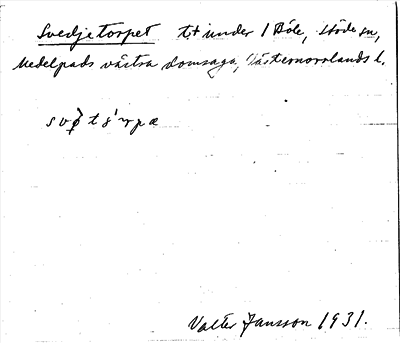 Svedjetorpet t:t under 1 Böle, Stöde sn,
Medelpads västra domsaga, Västernorrlands l.
Valter Jansson 1931.